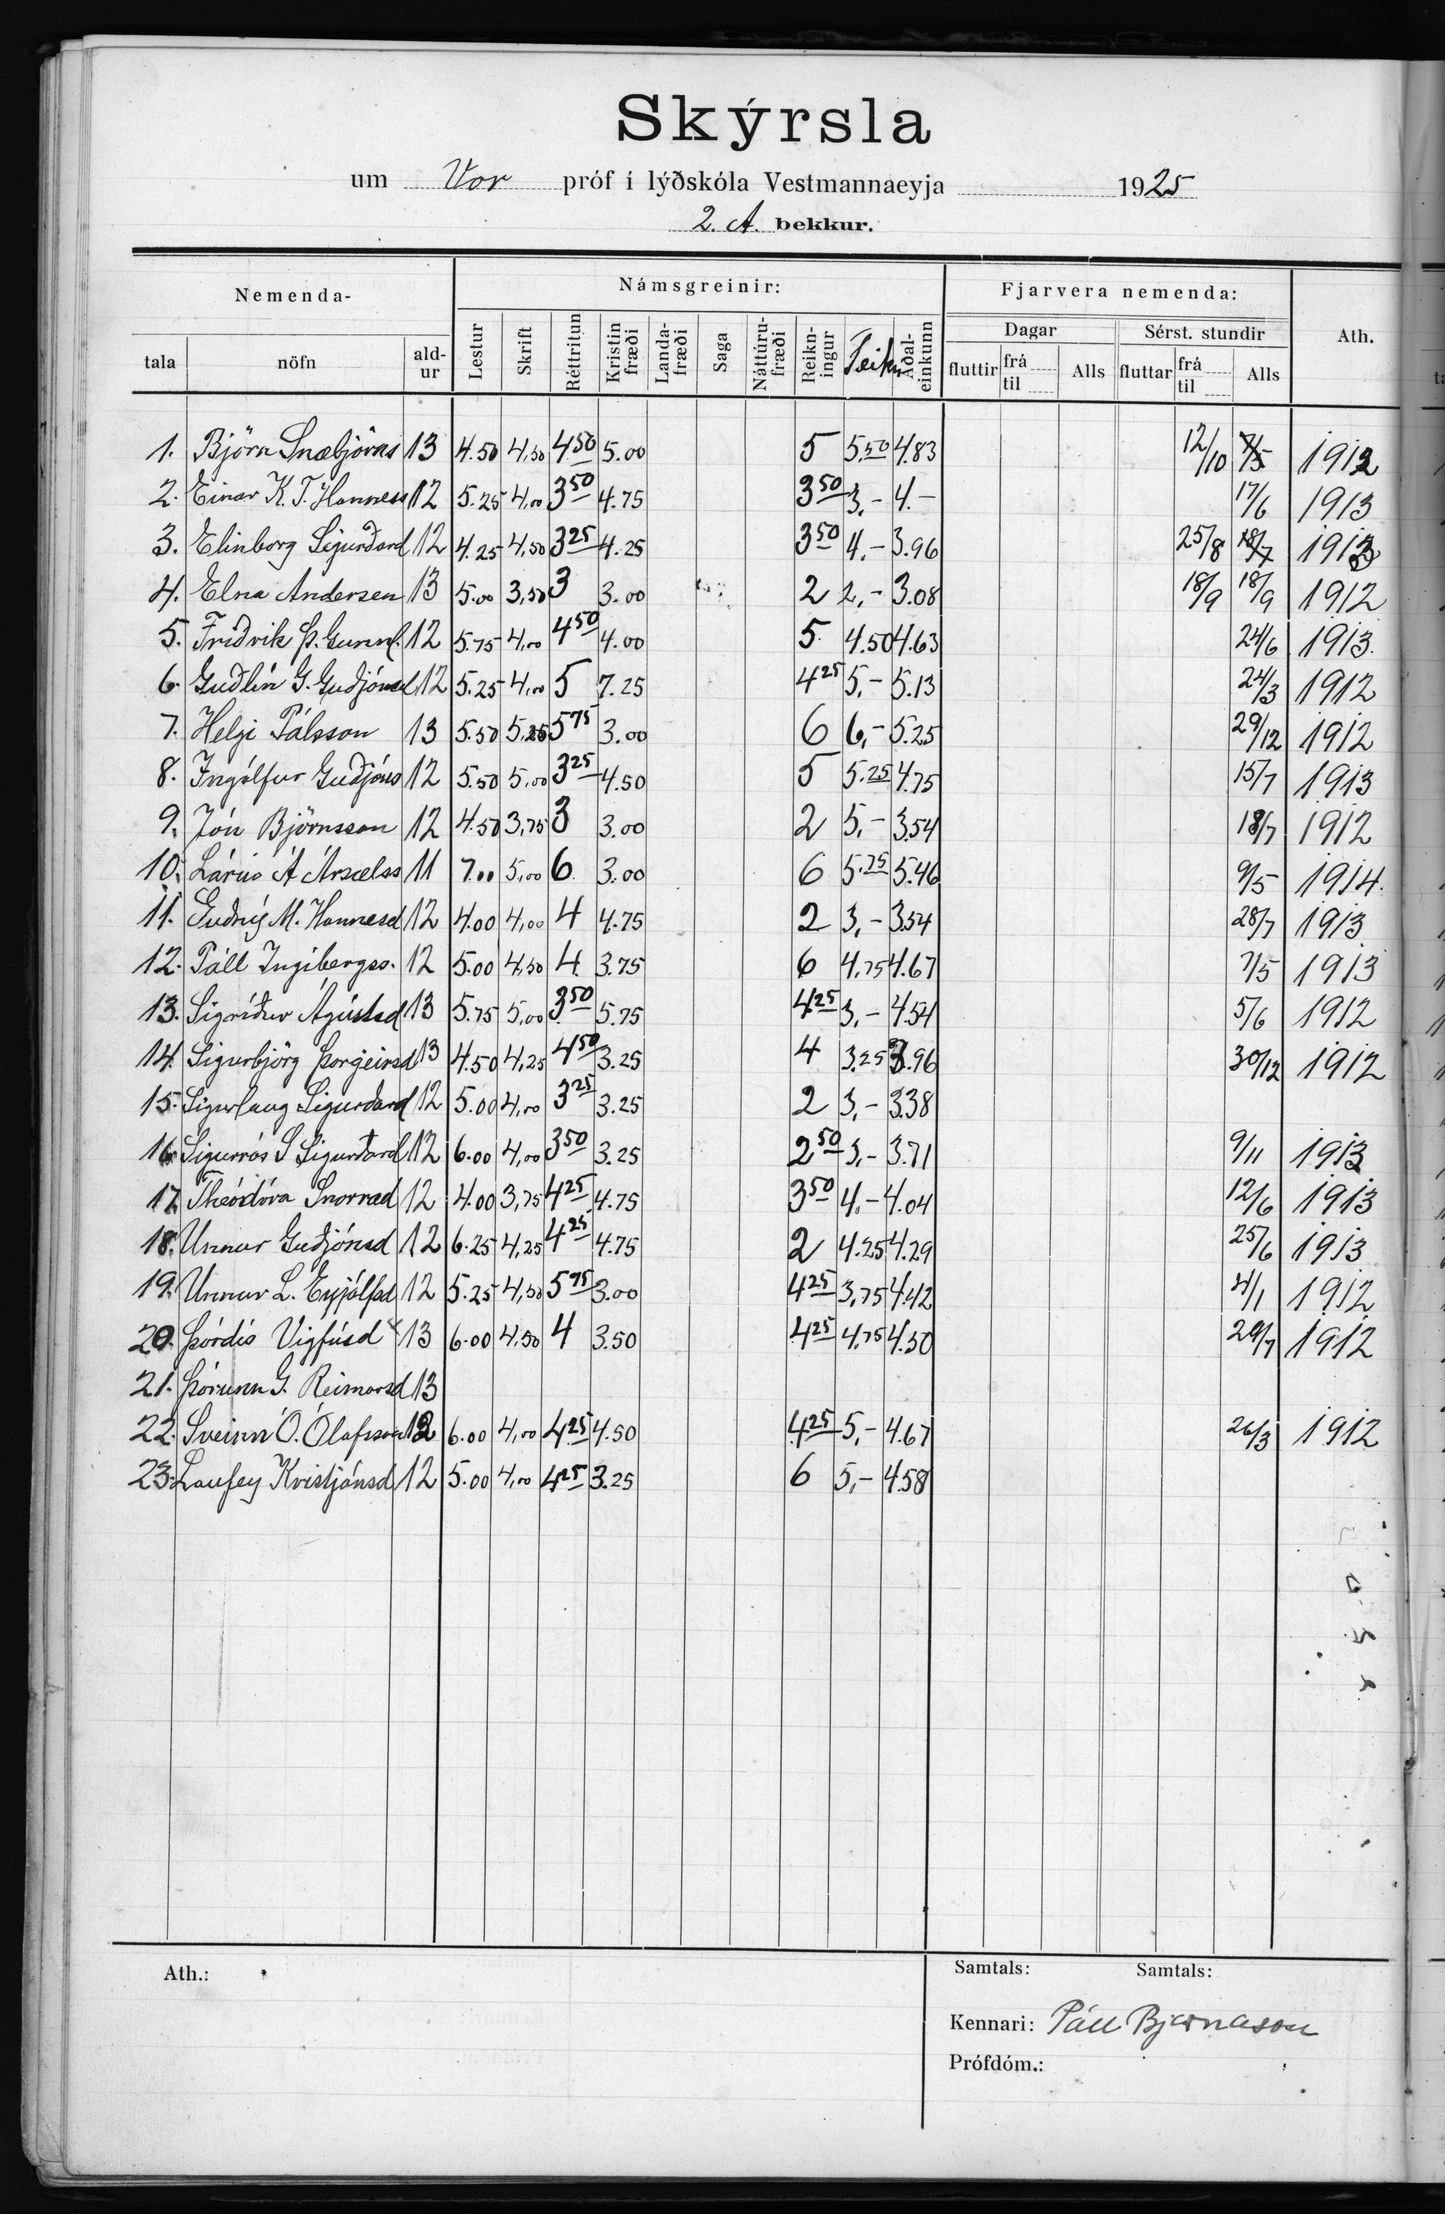 Skýrsla
um Vor próf í lýðskóla Vestmannaeyja 1925
2. A. bekkur.
Nemenda- Námsgreinir: Fjarvera nemenda: Ath.
Dagar Sérst. stundir
tala nöfn ald-ur Lestur Skrift Réttritun Kristin fræði Landa-fræði Saga Náttúru-fræði Reikn-ingur Teikn Aðal-einkunn fluttir frá til Alls fluttar frá til Alls
1. Björn Snæbjörns 13 4.50 4,50 4 50 5.00 5 5.50 4.83 12/10 7/5 1912
2. Einar K. T. Hanness 12 5.25 4,00 3 50 4.75 3 50 3,- 4.- 17/6 1913
3. Elinborg Sigurðard 12 4.25 4,50 3 25 4.25 3 50 4,- 3.96 25/8 18/7 1912
4. Elna Andersen 13 5.00 3,50 3 3.00 2 2,- 3.08 18/9 18/9 1912
5. Friðrik Þ. Gunnl. 12 5.75 4,00 4 50 4.00 5 4.50 4.63 24/6 1913.
6. Guðlín G. Guðjónsd 12 5.25 4,00 5 7.25 4 25 5,- 5.13 24/3 1912
7. Helgi Pálsson 13 5.50 5,25 5 75 3.00 6 6,- 5.25 29/12 1912
8. Ingólfur Guðjóns 12 5.50 5,00 3 25 4.50 5 5.25 4.75 15/7 1913
9. Jón Björnsson 12 4.50 3,75 3 3.00 2 5,- 3.54 18/7 1912
10. Lárus Á Ársælss 11 7.00 5,00 6 3.00 6 5.75 5.46 9/5 1914.
11. Guðný M. Hannesd 12 4.00 4,00 4 4.75 2 3,- 3.54 28/7 1913
12. Páll Ingibergss. 12 5.00 4,50 4 3.75 6 4.75 4.67 7/5 1913
13. Sigríður Ágústsd 13 5.75 5,00 3 50 5.75 4 25 3,- 4.54 5/6 1912
14. Sigurbjörg Þorgeirsd 13 4.50 4,25 4 50 3.25 4 3.25 3.96 30/12 1912
15. Sigurlaug Sigurðard 12 5.00 4,00 3 25 3.25 2 3,- 3.38
16. Sigurrós S Sigurðard 12 6.00 4,00 3 50 3.25 2 50 3,- 3.71 9/11 1912
17. Theódóra Snorrad 12 4.00 3,75 4 25 4.75 3 50 4,- 4.04 12/6 1913
18. Unnur Guðjónsd 12 6.25 4,25 4 25 4.75 2 4.25 4.29 25/6 1913
19. Unnur L. Eyjólfsd 12 5.25 4,50 5 75 3.00 4 25 3,75 4.42 4/1 1912
20. Þórdís Vigfúsd 13 6.00 4,50 4 3.50 4 25 4,75 4.50 29/7 1912
21. Þórunn G. Reimarsd 13
22. Sveinn Ó. Ólafsson 12 6.00 4,00 4 25 4.50 4 25 5,- 4.67 26/3 1912
23. Laufey Kristjánsd 12 5.00 4,00 4 25 3.25 6 5,- 4.58
Ath.: Samtals: Samtals:
Kennari: Páll Bjarnason
Prófdóm.: